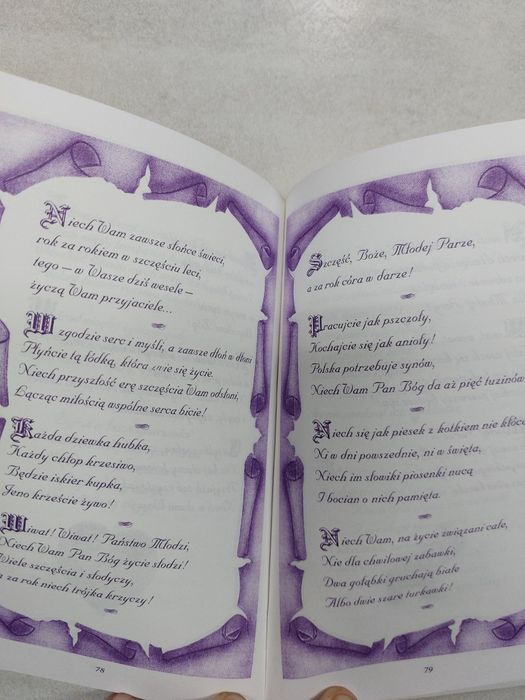 Niech Wam zawsze słońce świeci,
rok za rokiem w szczęściu leci,
tego – w Wasze dziś wesele –
życzą Wam przyjaciele...
W zgodzie serc i myśli, a zawsze dłoń w dłoni
Płyńcie tą łódką, która zwie się życie.
Niech przyszłość erę szczęścia Wam odsłoni,
Łącząc miłością wspólne serca bicie!
Każda dziewka hubka,
Każdy chłop krzesiwo,
Będzie iskier kupka,
Jeno krzeście żywo!
Wiwat! Wiwat! Państwo Młodzi,
Niech Wam Pan Bóg życie słodzi!
Wiele szczęścia i słodyczy,
a za rok niech trójka krzyczy!
78
Szczęść, Boże, Młodej Parze,
a za rok córa w darze!
Pracujcie jak pszczoły,
Kochajcie się jak anioły!
Polska potrzebuje synów,
Niech Wam Pan Bóg da aż pięć tuzinów
Niech się jak piesek z kotkiem nie kłócą
Ni w dni powszednie, ni w święta,
Niech im słowiki piosenki nucą
I bocian o nich pamięta.
Niech Wam, na życie związani całe,
Nie dla chwilowej zabawki,
Dwa gołąbki gruchają białe
Albo dwie szare turkawki!
79